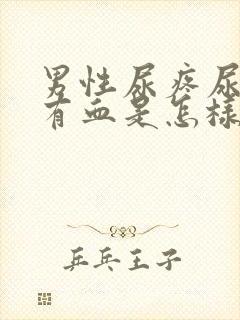 男性尿疼尿
有血是怎样
乒乓王子